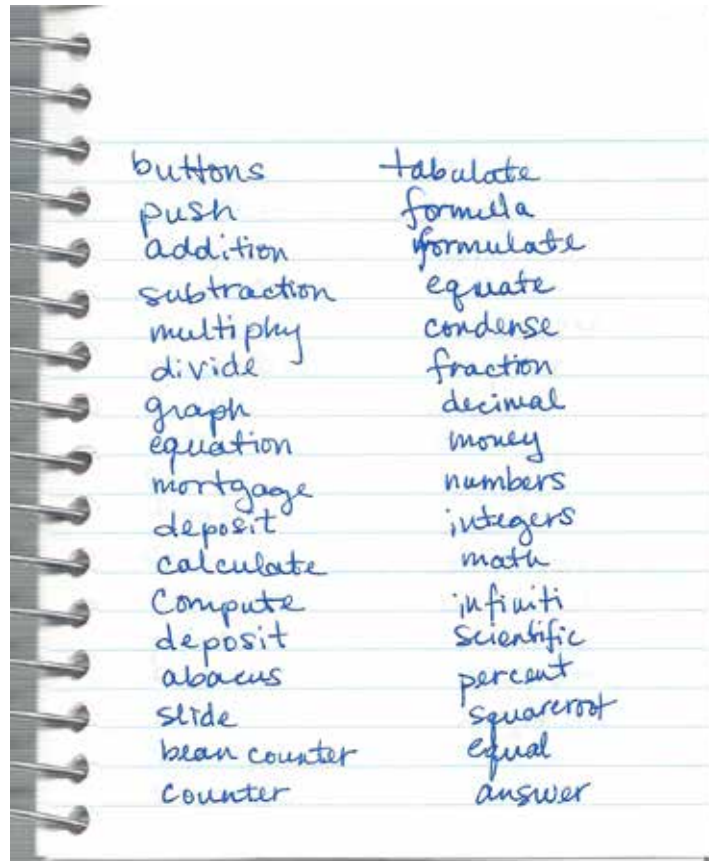 buttons
push
addition
subtraction
multiply
divide
graph
equation
mortgage
deposit
calculate
Compute
deposit
abacus
slide
bean counter
counter
tabulate
formula
formulate
equate
condense
fraction
decimal
money
numbers
integers
math
infiniti
scientific
percent
squareroot
equal
answer